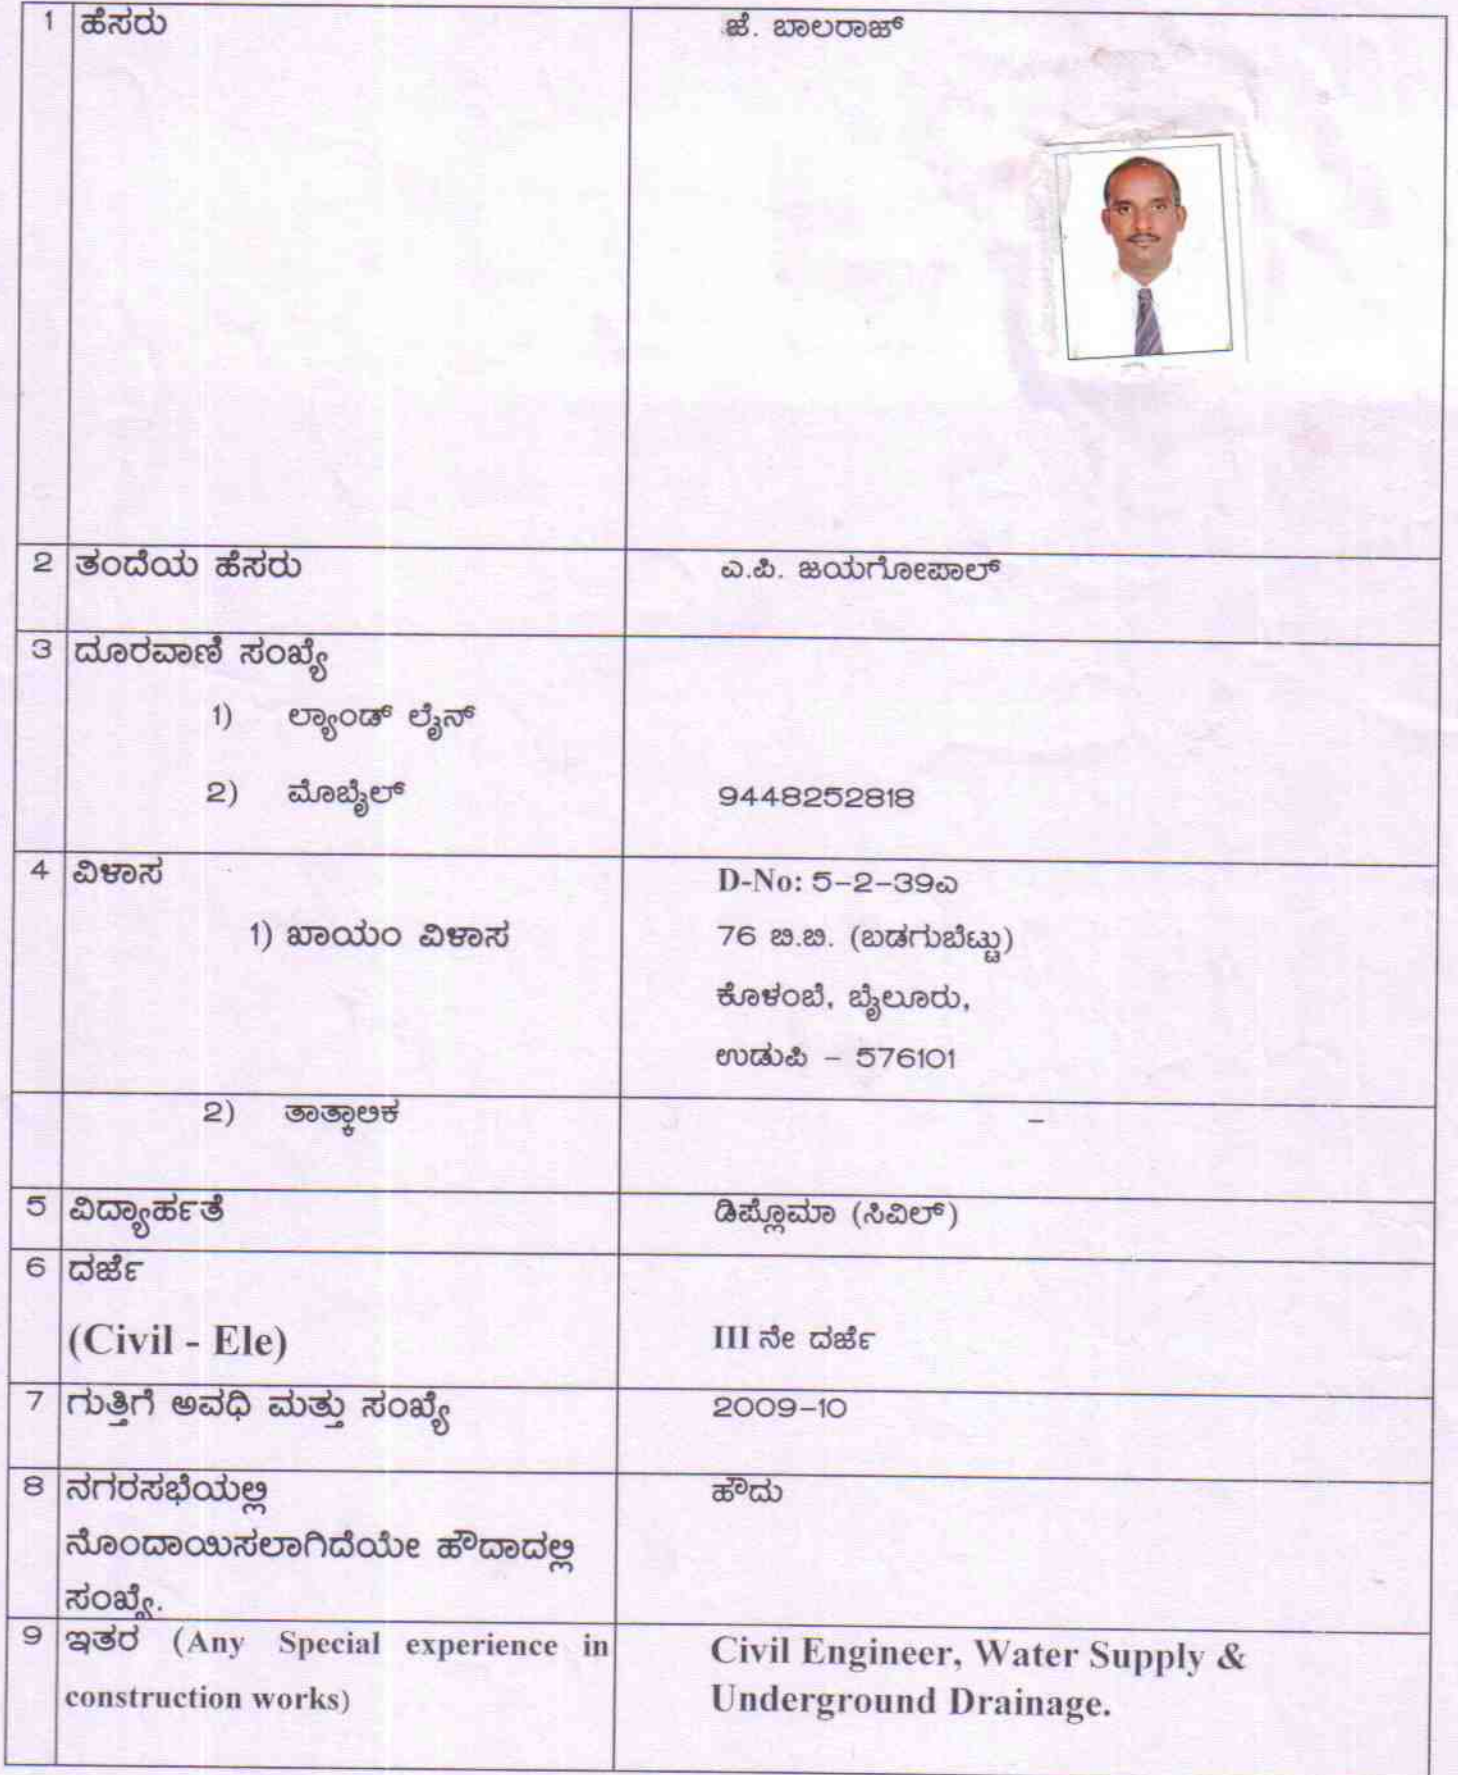 1 ಹೆಸರು ಜೆ. ಬಾಲರಾಜ್
2 ತಂದೆಯ ಹೆಸರು ಎ.ಪಿ. ಜಯಗೋಪಾಲ್
3 ದೂರವಾಣಿ ಸಂಖ್ಯೆ
1) ಲ್ಯಾಂಡ್ ಲೈನ್
2) ಮೊಬೈಲ್ 9448252818
4 ವಿಳಾಸ D-No: 5-2-39ಎ
1) ಖಾಯಂ ವಿಳಾಸ 76 ಬಿ.ಬಿ. (ಬಡಗುಬೆಟ್ಟು)
ಕೊಳಂಬೆ, ಬೈಲೂರು,
ಉಡುಪಿ – 576101
2) ತಾತ್ಕಾಲಿಕ –
5 ವಿದ್ಯಾರ್ಹತೆ ಡಿಪ್ಲೊಮಾ (ಸಿವಿಲ್)
6 ದರ್ಜೆ
(Civil - Ele) III ನೇ ದರ್ಜೆ
7 ಗುತ್ತಿಗೆ ಅವಧಿ ಮತ್ತು ಸಂಖ್ಯೆ 2009-10
8 ನಗರಸಭೆಯಲ್ಲಿ ಹೌದು
ನೊಂದಾಯಿಸಲಾಗಿದೆಯೇ ಹೌದಾದಲ್ಲಿ
ಸಂಖ್ಯೆ.
9 ಇತರ (Any Special experience in Civil Engineer, Water Supply &
construction works) Underground Drainage.